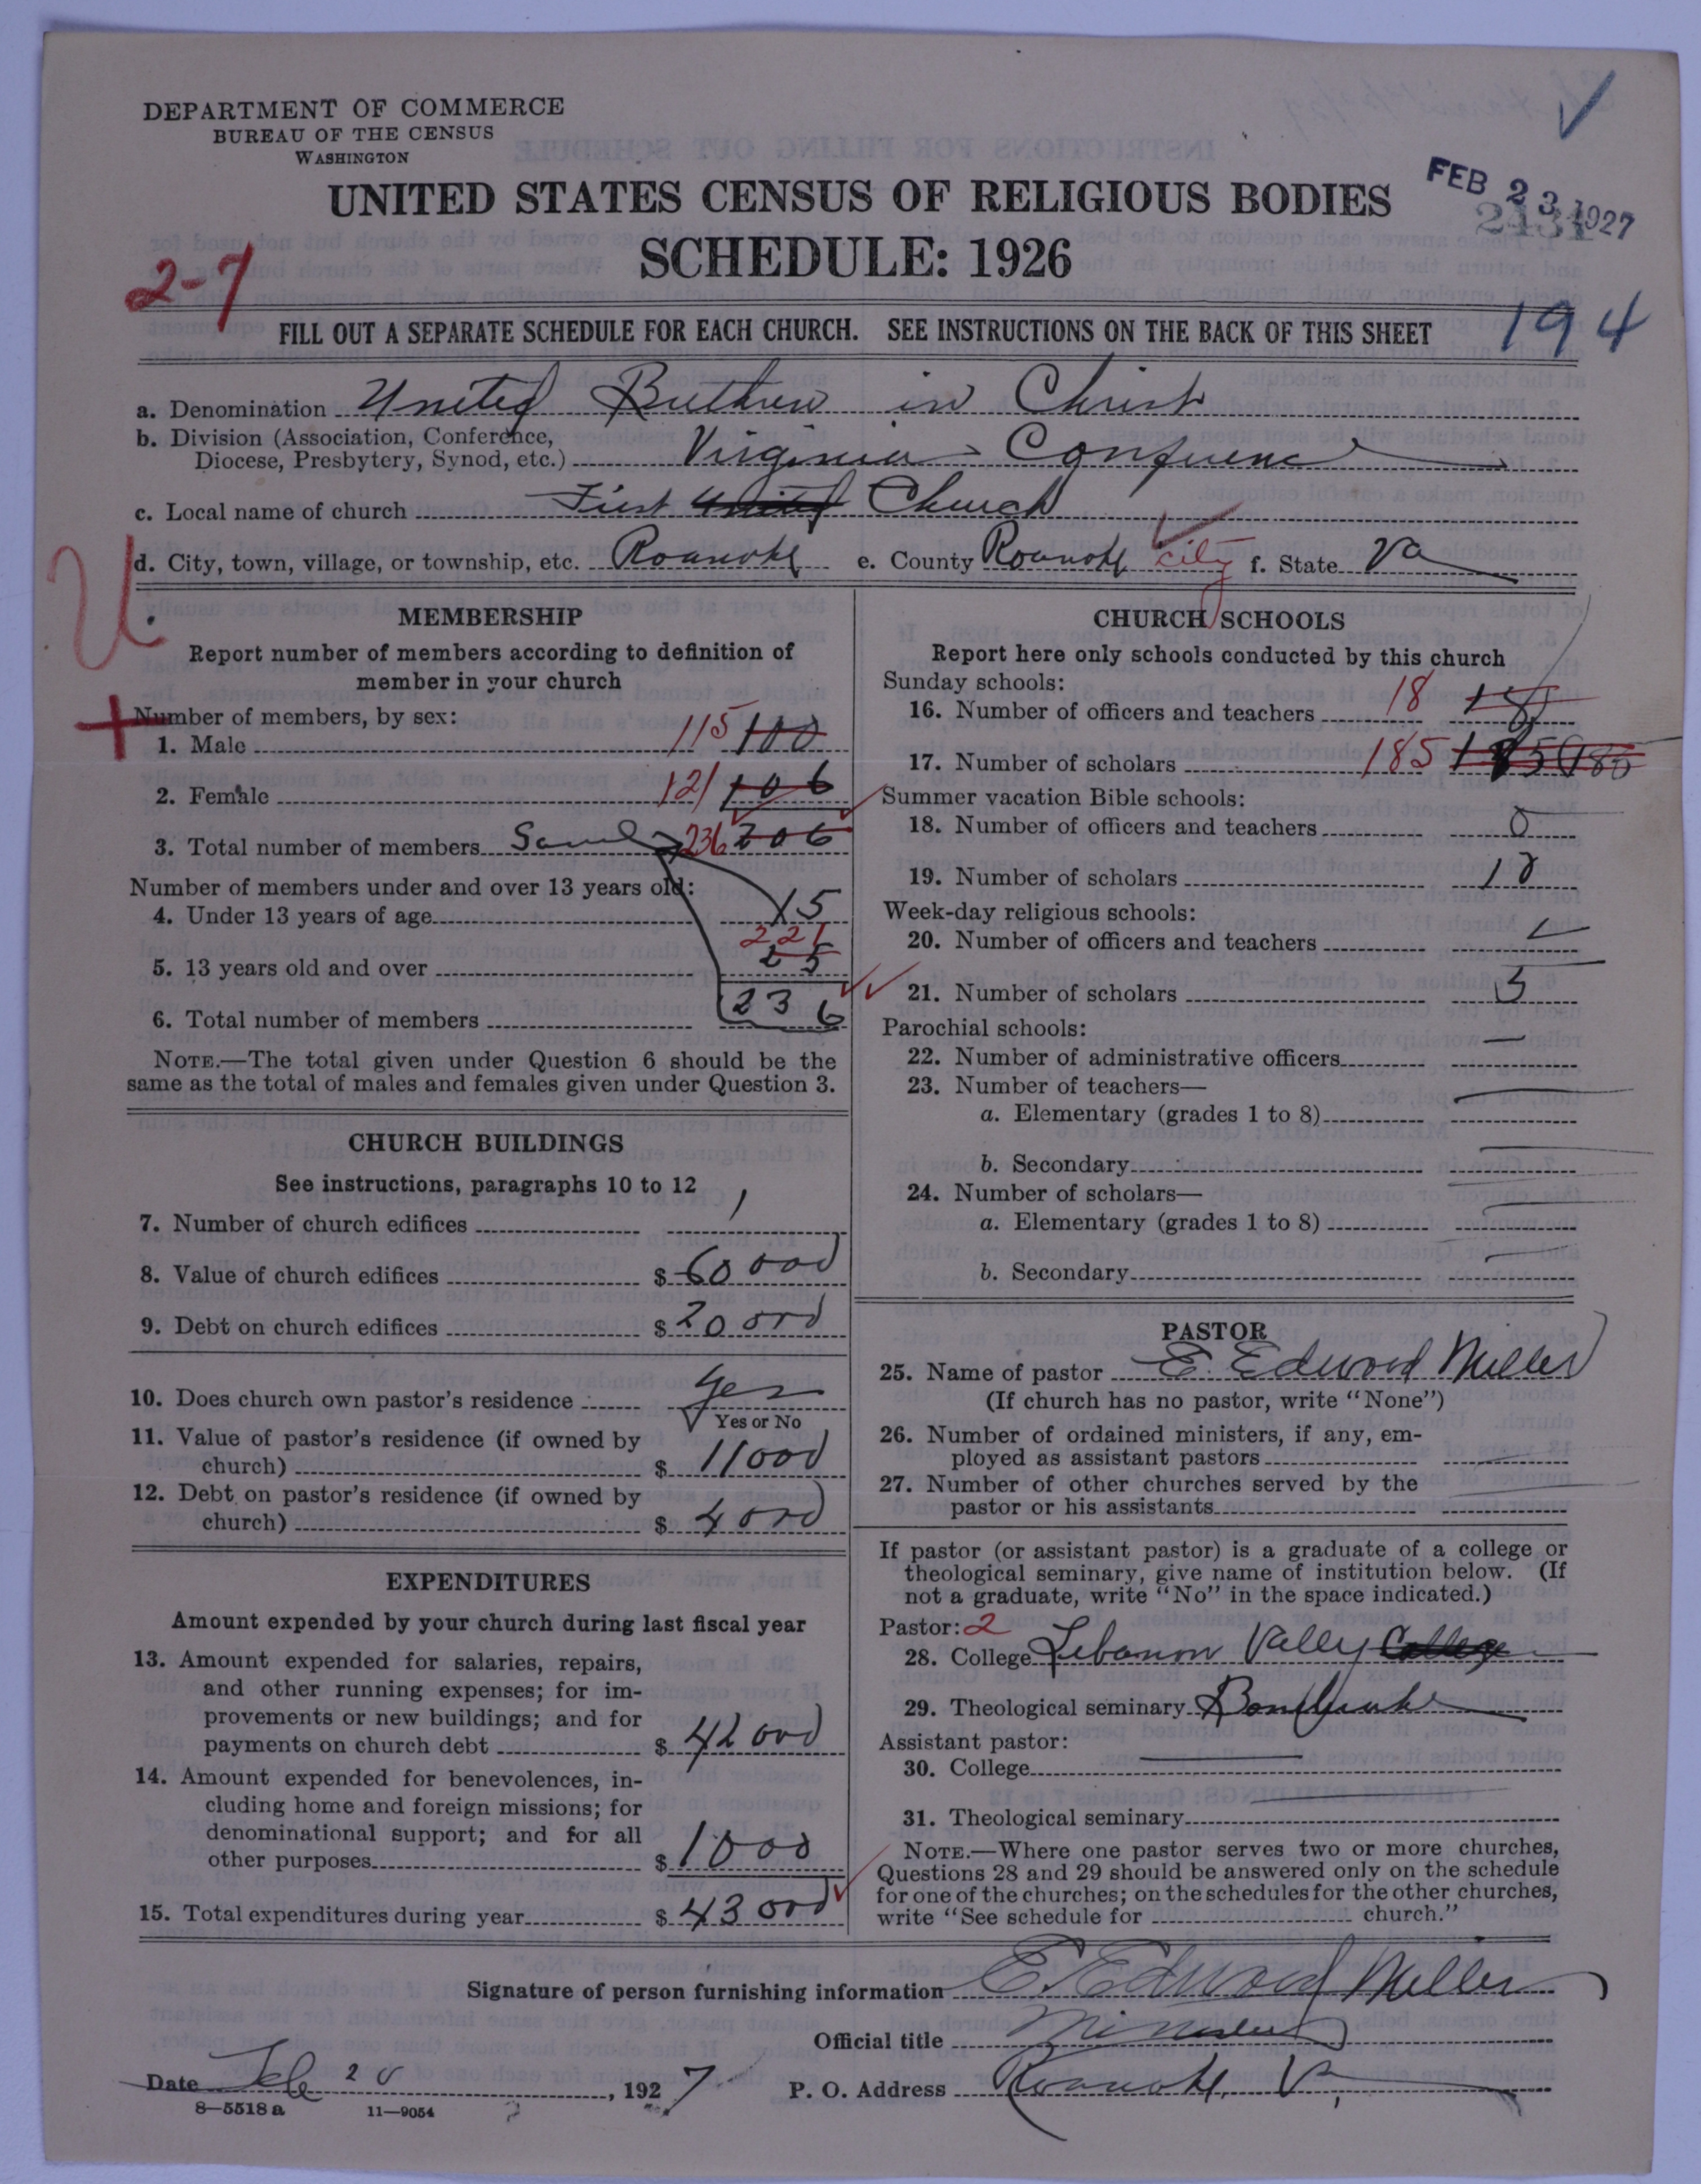 DEPARTMENT OF COMMERCE
BUREAU OF THE CENSUS
WASHINGTON
UNITED STATES CENSUS OF RELIGIOUS BODIES
SCHEDULE: 1926
FEB 23 1927
2-7
194
FILL OUT A SEPARATE SCHEDULE FOR EACH CHURCH. SEE INSTRUCTIONS ON THE BACK OF THIS SHEET
a. Denomination United Brethren in Christ
b. Division (Association, Conference,
Diocese, Presbytery, Synod, etc.) Virginia Conference
c. Local name of church First United Church
d. City, town, village, or township, etc. Roanoke e. County Roanoke City f. State Va
U
MEMBERSHIP
Report number of members according to definition of
member in your church
Number of members, by sex:
1. Male 115 100
2. Female 121 106
3. Total number of members 236 206
Number of members under and over 13 years old:
4. Under 13 years of age 15
221
5. 13 years old and over 25
6. Total number of members 236
NOTE.—The total given under Question 6 should be the
same as the total of males and females given under Question 3.
CHURCH BUILDINGS
See instructions, paragraphs 10 to 12
7. Number of church edifices 1
8. Value of church edifices $ 60 000
9. Debt on church edifices $ 20 000
10. Does church own pastor's residence Yes
Yes or No
11. Value of pastor's residence (if owned by
church) $ 11000
12. Debt on pastor's residence (if owned by
church) $ 4000
EXPENDITURES
Amount expended by your church during last fiscal year
13. Amount expended for salaries, repairs,
and other running expenses; for im-
provements or new buildings; and for
payments on church debt $ 42 000
14. Amount expended for benevolences, in-
cluding home and foreign missions; for
denominational support; and for all
other purposes $ 1000
15. Total expenditures during year $ 43 000
CHURCH SCHOOLS
Report here only schools conducted by this church
Sunday schools:
16. Number of officers and teachers 18 18
17. Number of scholars 185 185 185
Summer vacation Bible schools:
18. Number of officers and teachers 0
19. Number of scholars
Week-day religious schools:
20. Number of officers and teachers
21. Number of scholars 3
Parochial schools:
22. Number of administrative officers
23. Number of teachers—
a. Elementary (grades 1 to 8)
b. Secondary
24. Number of scholars—
a. Elementary (grades 1 to 8)
b. Secondary
PASTOR
25. Name of pastor E. Edward Miller
(If church has no pastor, write "None")
26. Number of ordained ministers, if any, em-
ployed as assistant pastors
27. Number of other churches served by the
pastor or his assistants
If pastor (or assistant pastor) is a graduate of a college or
theological seminary, give name of institution below. (If
not a graduate, write "No" in the space indicated.)
Pastor: 2
28. College Lebanon Valley College
29. Theological seminary Bonebrake
Assistant pastor:
30. College
31. Theological seminary
NOTE.—Where one pastor serves two or more churches,
Questions 28 and 29 should be answered only on the schedule
for one of the churches; on the schedules for the other churches,
write "See schedule for church."
Signature of person furnishing information E. Edward Miller
Official title Minister
Date Feb 20, 1927 P. O. Address Roanoke, Va
8—5518 a 11—9054